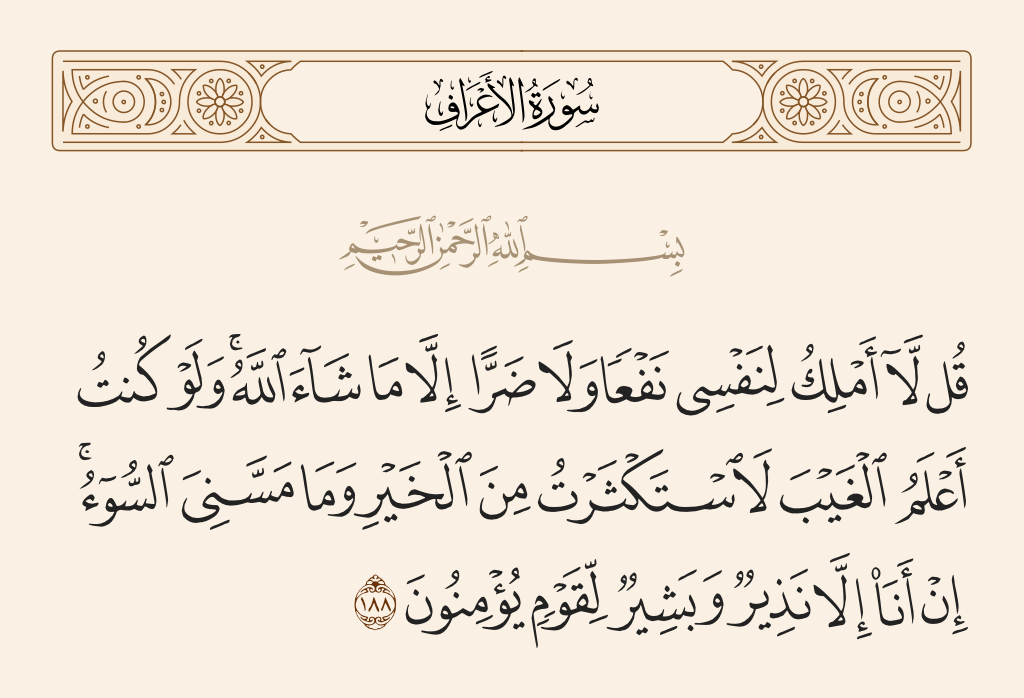 سُورَةُ الأَعْرَافِ
بِسْمِ ٱللَّهِ ٱلرَّحْمَٰنِ ٱلرَّحِيمِ
قُل لَّآ أَمْلِكُ لِنَفْسِى نَفْعًا وَلَا ضَرًّا إِلَّا مَا شَآءَ ٱللَّهُ ۚ وَلَوْ كُنتُ
أَعْلَمُ ٱلْغَيْبَ لَٱسْتَكْثَرْتُ مِنَ ٱلْخَيْرِ وَمَا مَسَّنِىَ ٱلسُّوٓءُ ۚ
إِنْ أَنَا۠ إِلَّا نَذِيرٌ وَبَشِيرٌ لِّقَوْمٍ يُؤْمِنُونَ ١٨٨